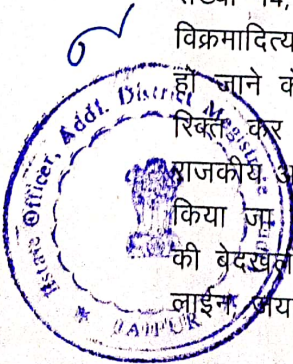 विक्रमादित्य
हो जाने के
रिक्त कर
राजकीय
किया जा
की बेदखली
लाईन, जय
Estate Officer, Addl. District Magistrate
* JAIPUR *